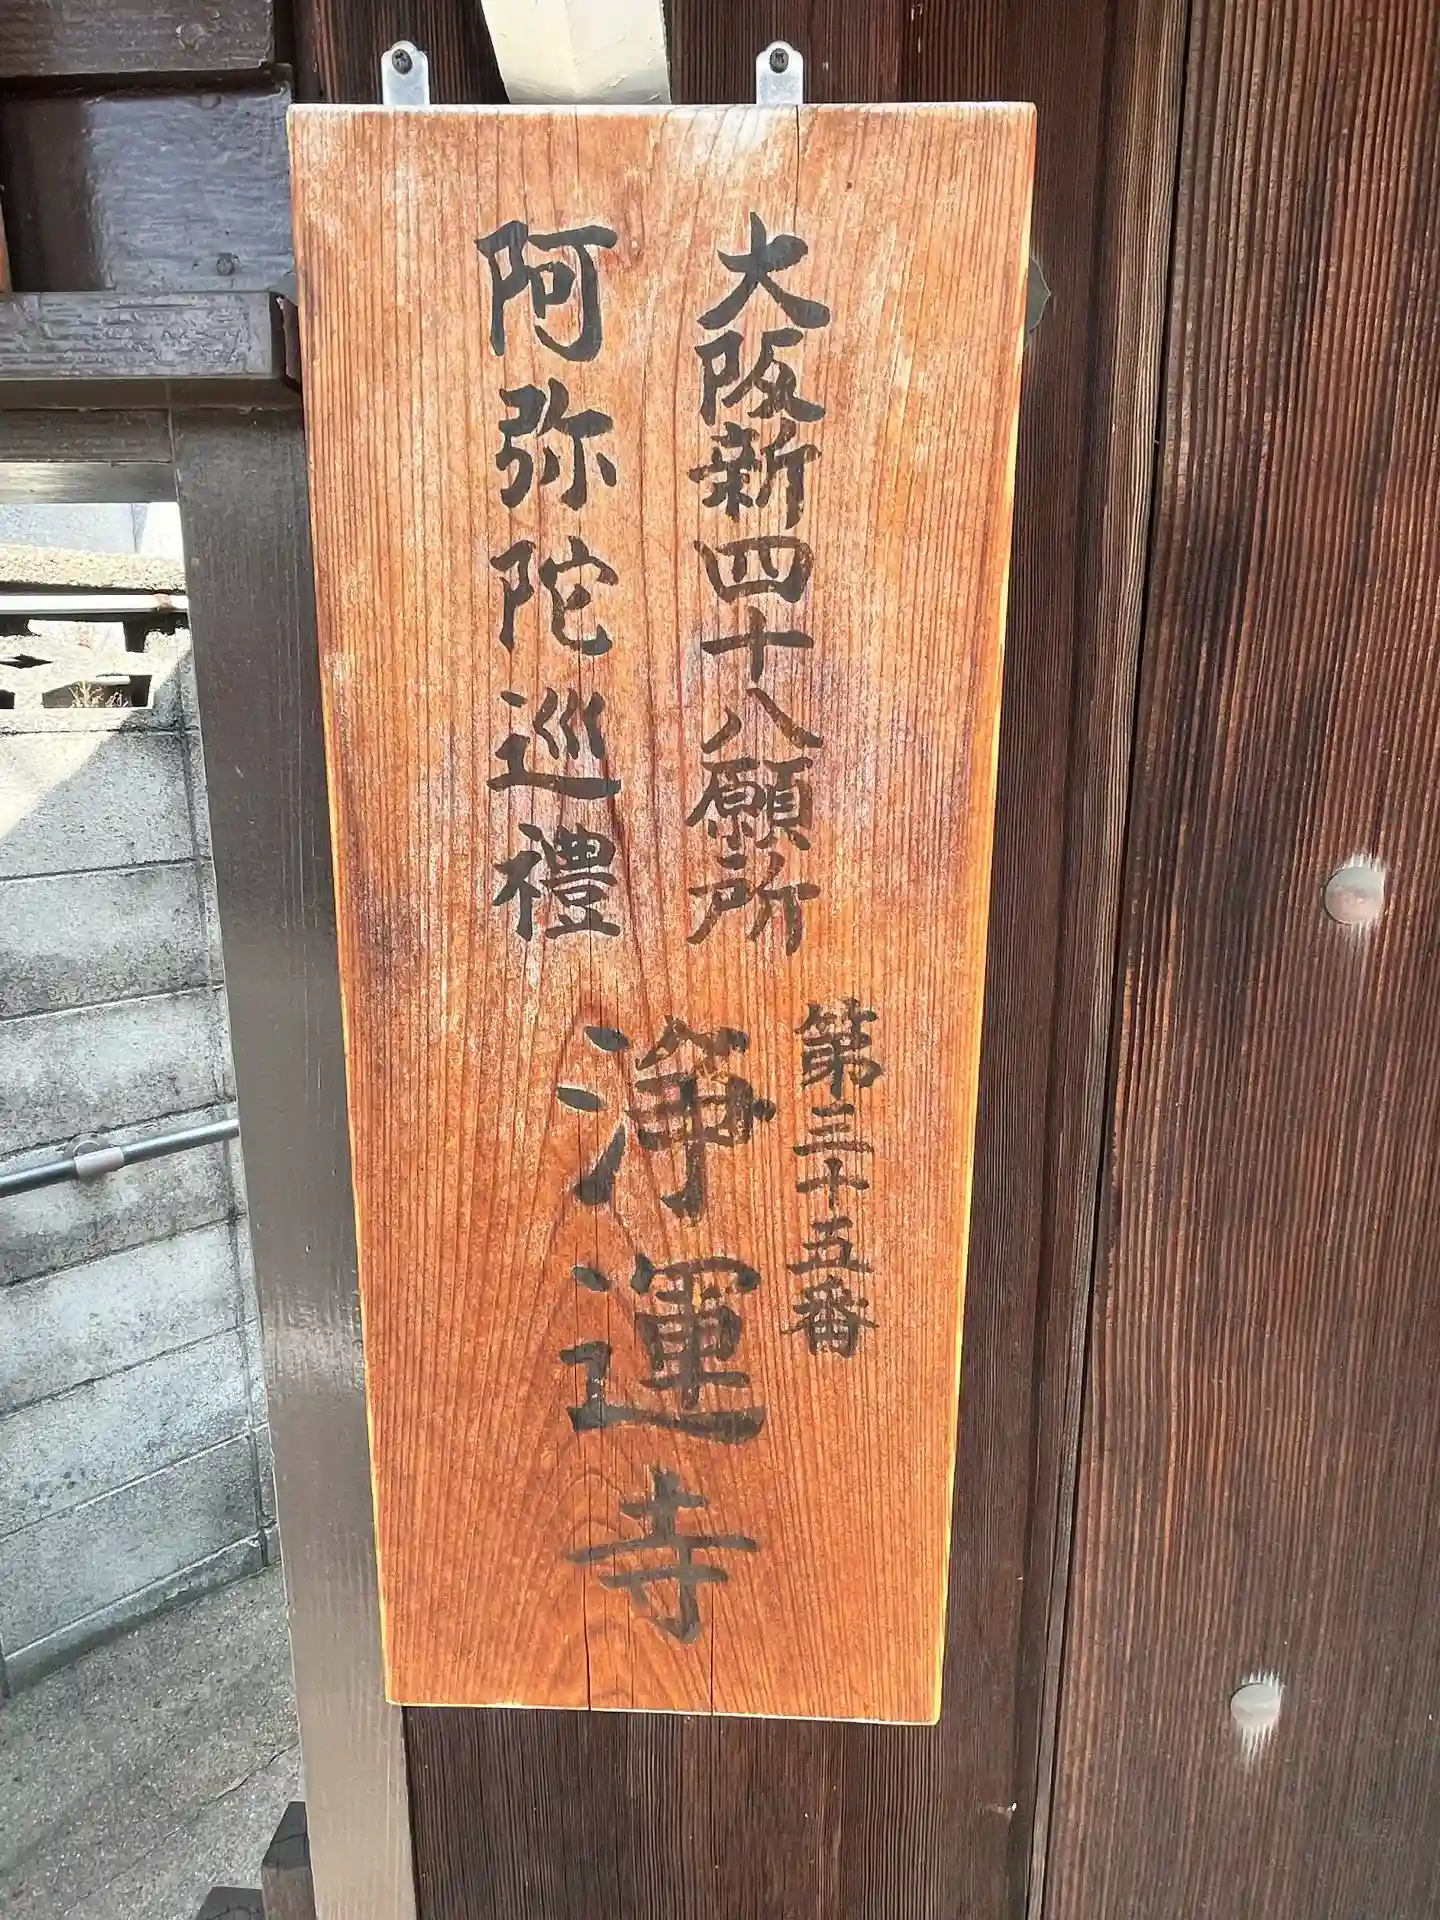 大阪新四十八願所
阿弥陀巡禮
第三十五番
浄運寺